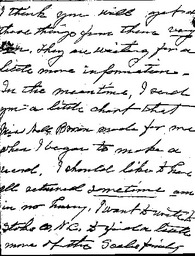 I think you will get
those things from there very
soon, they are waiting for a
little more information.
In the meantime, I send
you a little chart that
Miss Nell Brown made for me
when I began to make a
record, I should like to have
all returned sometime and
in no hurry. I want to write to
Stokes Co, N.C. to find a little
more of the Scales family